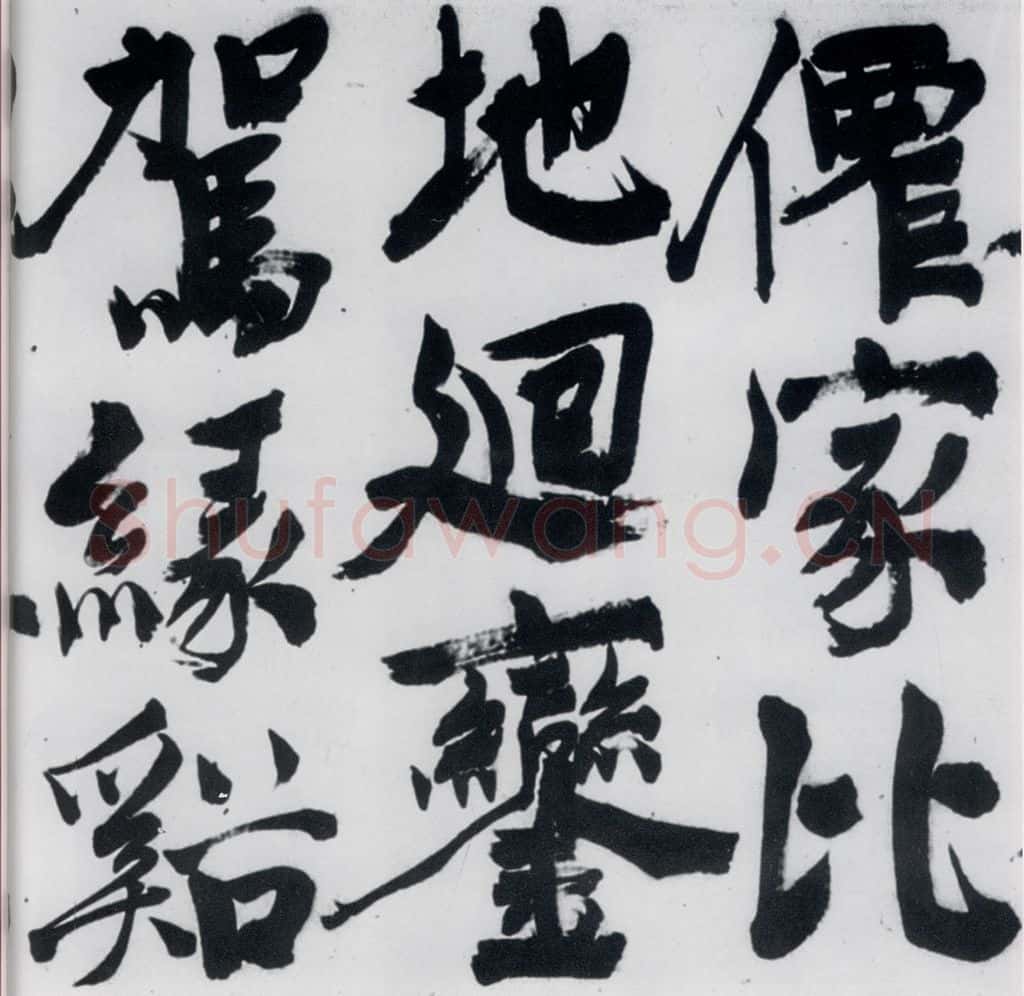 僊家比
地迴鑾
駕緣谿
Shufawang.CN